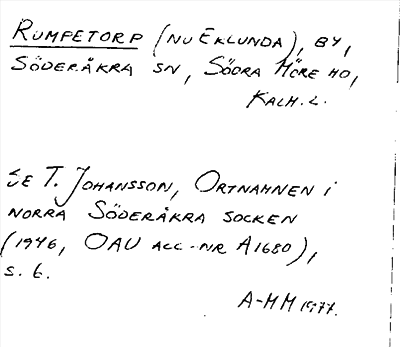 RUMPETORP (NU EKLUNDA), BY,
SÖDERÅKRA SN, SÖDRA MÖRE HD,
KALM. L.
SE T. JOHANSSON, ORTNAMNEN I
NORRA SÖDERÅKRA SOCKEN
(1946, OAU ACC.-NR A1680),
S. 6.
A-MM 1977.